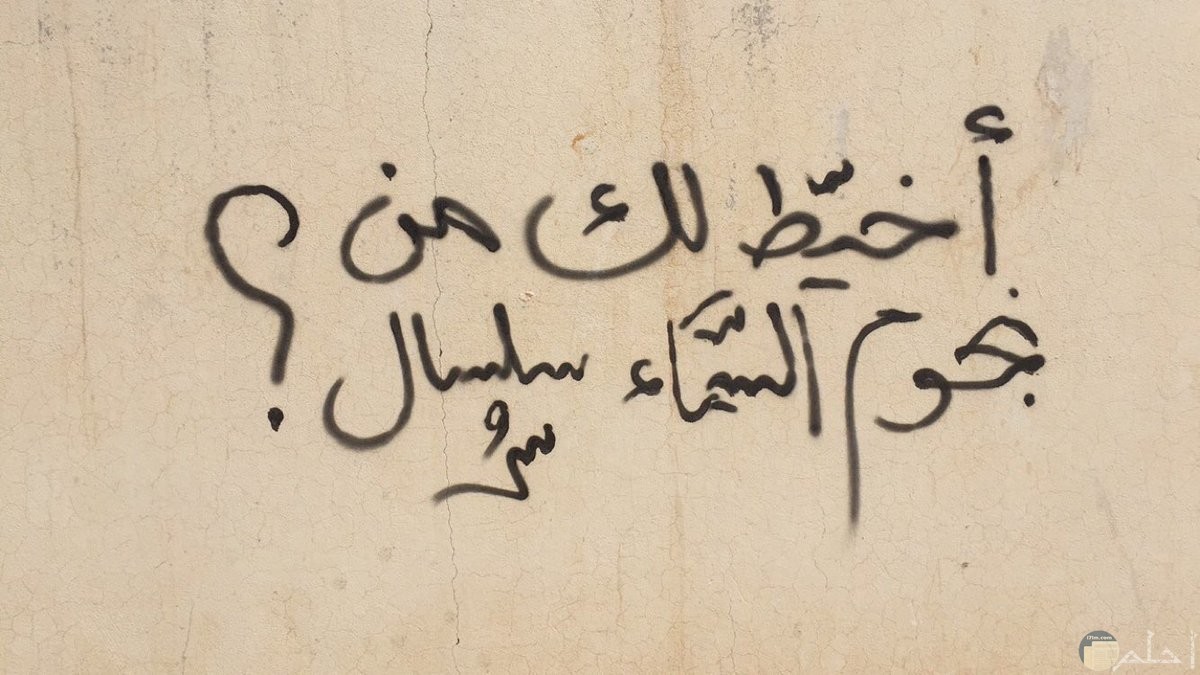 أخيّط لك من
نجوم السّماء سلسال ؟
احلم
i7lm.com